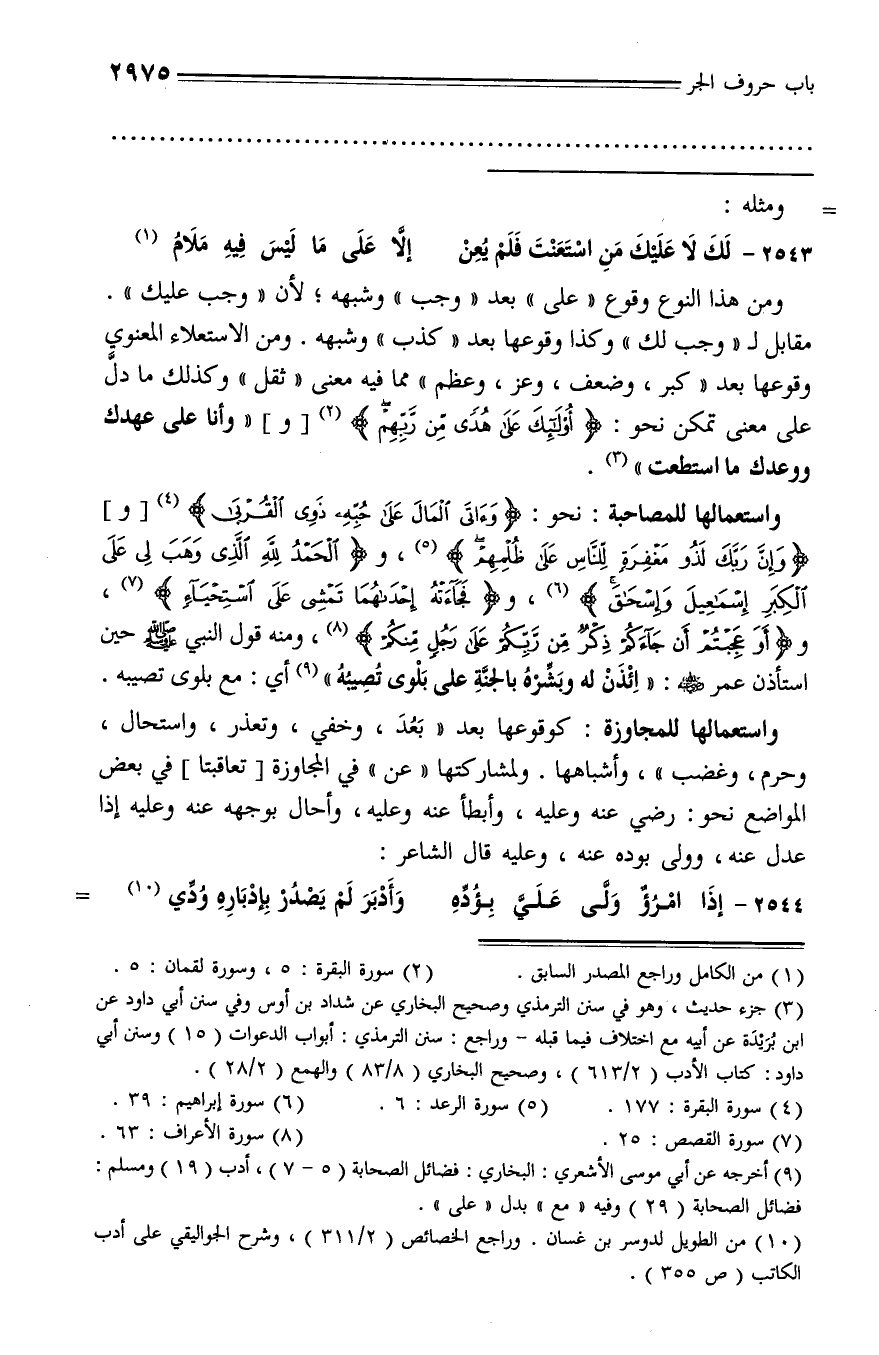 باب حروف الجر ٢٩٧٥
= ومثله :
٢٥٤٣ - لَكَ لَا عَلَيْكَ مَنِ اسْتَعَنْتَ فَلَمْ يُعِنْ إلَّا عَلَى مَا لَيْسَ فِيهِ مَلَامُ (١)
ومن هذا النوع وقوع « على » بعد « وجب » وشبهه ؛ لأن « وجب عليك » .
مقابل لـ « وجب لك » وكذا وقوعها بعد « كذب » وشبهه . ومن الاستعلاء المعنوي
وقوعها بعد « كبر ، وضعف ، وعز ، وعظم » مما فيه معنى « ثقل » وكذلك ما دلَّ
على معنى تمكن نحو : ﴿ أُوْلَٰٓئِكَ عَلَىٰ هُدًى مِّن رَّبِّهِمْۖ ﴾ (٢) [ و ] « وأنا على عهدك
ووعدك ما استطعت » (٣) .
واستعمالها للمصاحبة : نحو : ﴿ وَءَاتَى ٱلْمَالَ عَلَىٰ حُبِّهِۦ ذَوِى ٱلْقُرْبَىٰ ﴾ (٤) [ و ]
﴿ وَإِنَّ رَبَّكَ لَذُو مَغْفِرَةٍ لِّلنَّاسِ عَلَىٰ ظُلْمِهِمْۖ ﴾ (٥) ، و ﴿ ٱلْحَمْدُ لِلَّهِ ٱلَّذِى وَهَبَ لِى عَلَى
ٱلْكِبَرِ إِسْمَٰعِيلَ وَإِسْحَٰقَۚ ﴾ (٦) ، و ﴿ فَجَآءَتْهُ إِحْدَىٰهُمَا تَمْشِى عَلَى ٱسْتِحْيَآءٍ ﴾ (٧) ،
و ﴿ أَوَ عَجِبْتُمْ أَن جَآءَكُمْ ذِكْرٌ مِّن رَّبِّكُمْ عَلَىٰ رَجُلٍ مِّنكُمْ ﴾ (٨) ، ومنه قول النبي ﷺ حين
استأذن عمر ﵁ : « اِئْذَنْ له وبَشِّرْهُ بالجنَّةِ على بَلْوى تُصِيبُهُ » (٩) أي : مع بلوى تصيبه .
واستعمالها للمجاوزة : كوقوعها بعد « بَعُدَ ، وخفي ، وتعذر ، واستحال ،
وحرم ، وغضب » ، وأشباهها . ولمشاركتها « عن » في المجاوزة [ تعاقبتا ] في بعض
المواضع نحو : رضي عنه وعليه ، وأبطأ عنه وعليه ، وأحال بوجهه عنه وعليه إذا
عدل عنه ، وولى بوده عنه ، وعليه قال الشاعر :
٢٥٤٤ - إذَا امْرُؤٌ وَلَّى عَلَيَّ بِوُدِّهِ وَأَدْبَرَ لَمْ يَصْدُرْ بِإدْبَارِهِ وُدِّي (١٠) =
(١) من الكامل وراجع المصدر السابق . (٢) سورة البقرة : ٥ ، وسورة لقمان : ٥ .
(٣) جزء حديث ، وهو في سنن الترمذي وصحيح البخاري عن شداد بن أوس وفي سنن أبي داود عن
ابن بُرَيْدَة عن أبيه مع اختلاف فيما قبله – وراجع : سنن الترمذي : أبواب الدعوات ( ١٥ ) وسنن أبي
داود : كتاب الأدب ( ٦١٣/٢ ) ، وصحيح البخاري ( ٨٣/٨ ) والهمع ( ٢٨/٢ ) .
(٤) سورة البقرة : ١٧٧ . (٥) سورة الرعد : ٦ . (٦) سورة إبراهيم : ٣٩ .
(٧) سورة القصص : ٢٥ . (٨) سورة الأعراف : ٦٣ .
(٩) أخرجه عن أبي موسى الأشعري : البخاري : فضائل الصحابة ( ٥ – ٧ ) ، أدب ( ١٩ ) ومسلم :
فضائل الصحابة ( ٢٩ ) وفيه « مع » بدل « على » .
(١٠) من الطويل لدوسر بن غسان . وراجع الخصائص ( ٣١١/٢ ) ، وشرح الجواليقي على أدب
الكاتب ( ص ٣٥٥ ) .